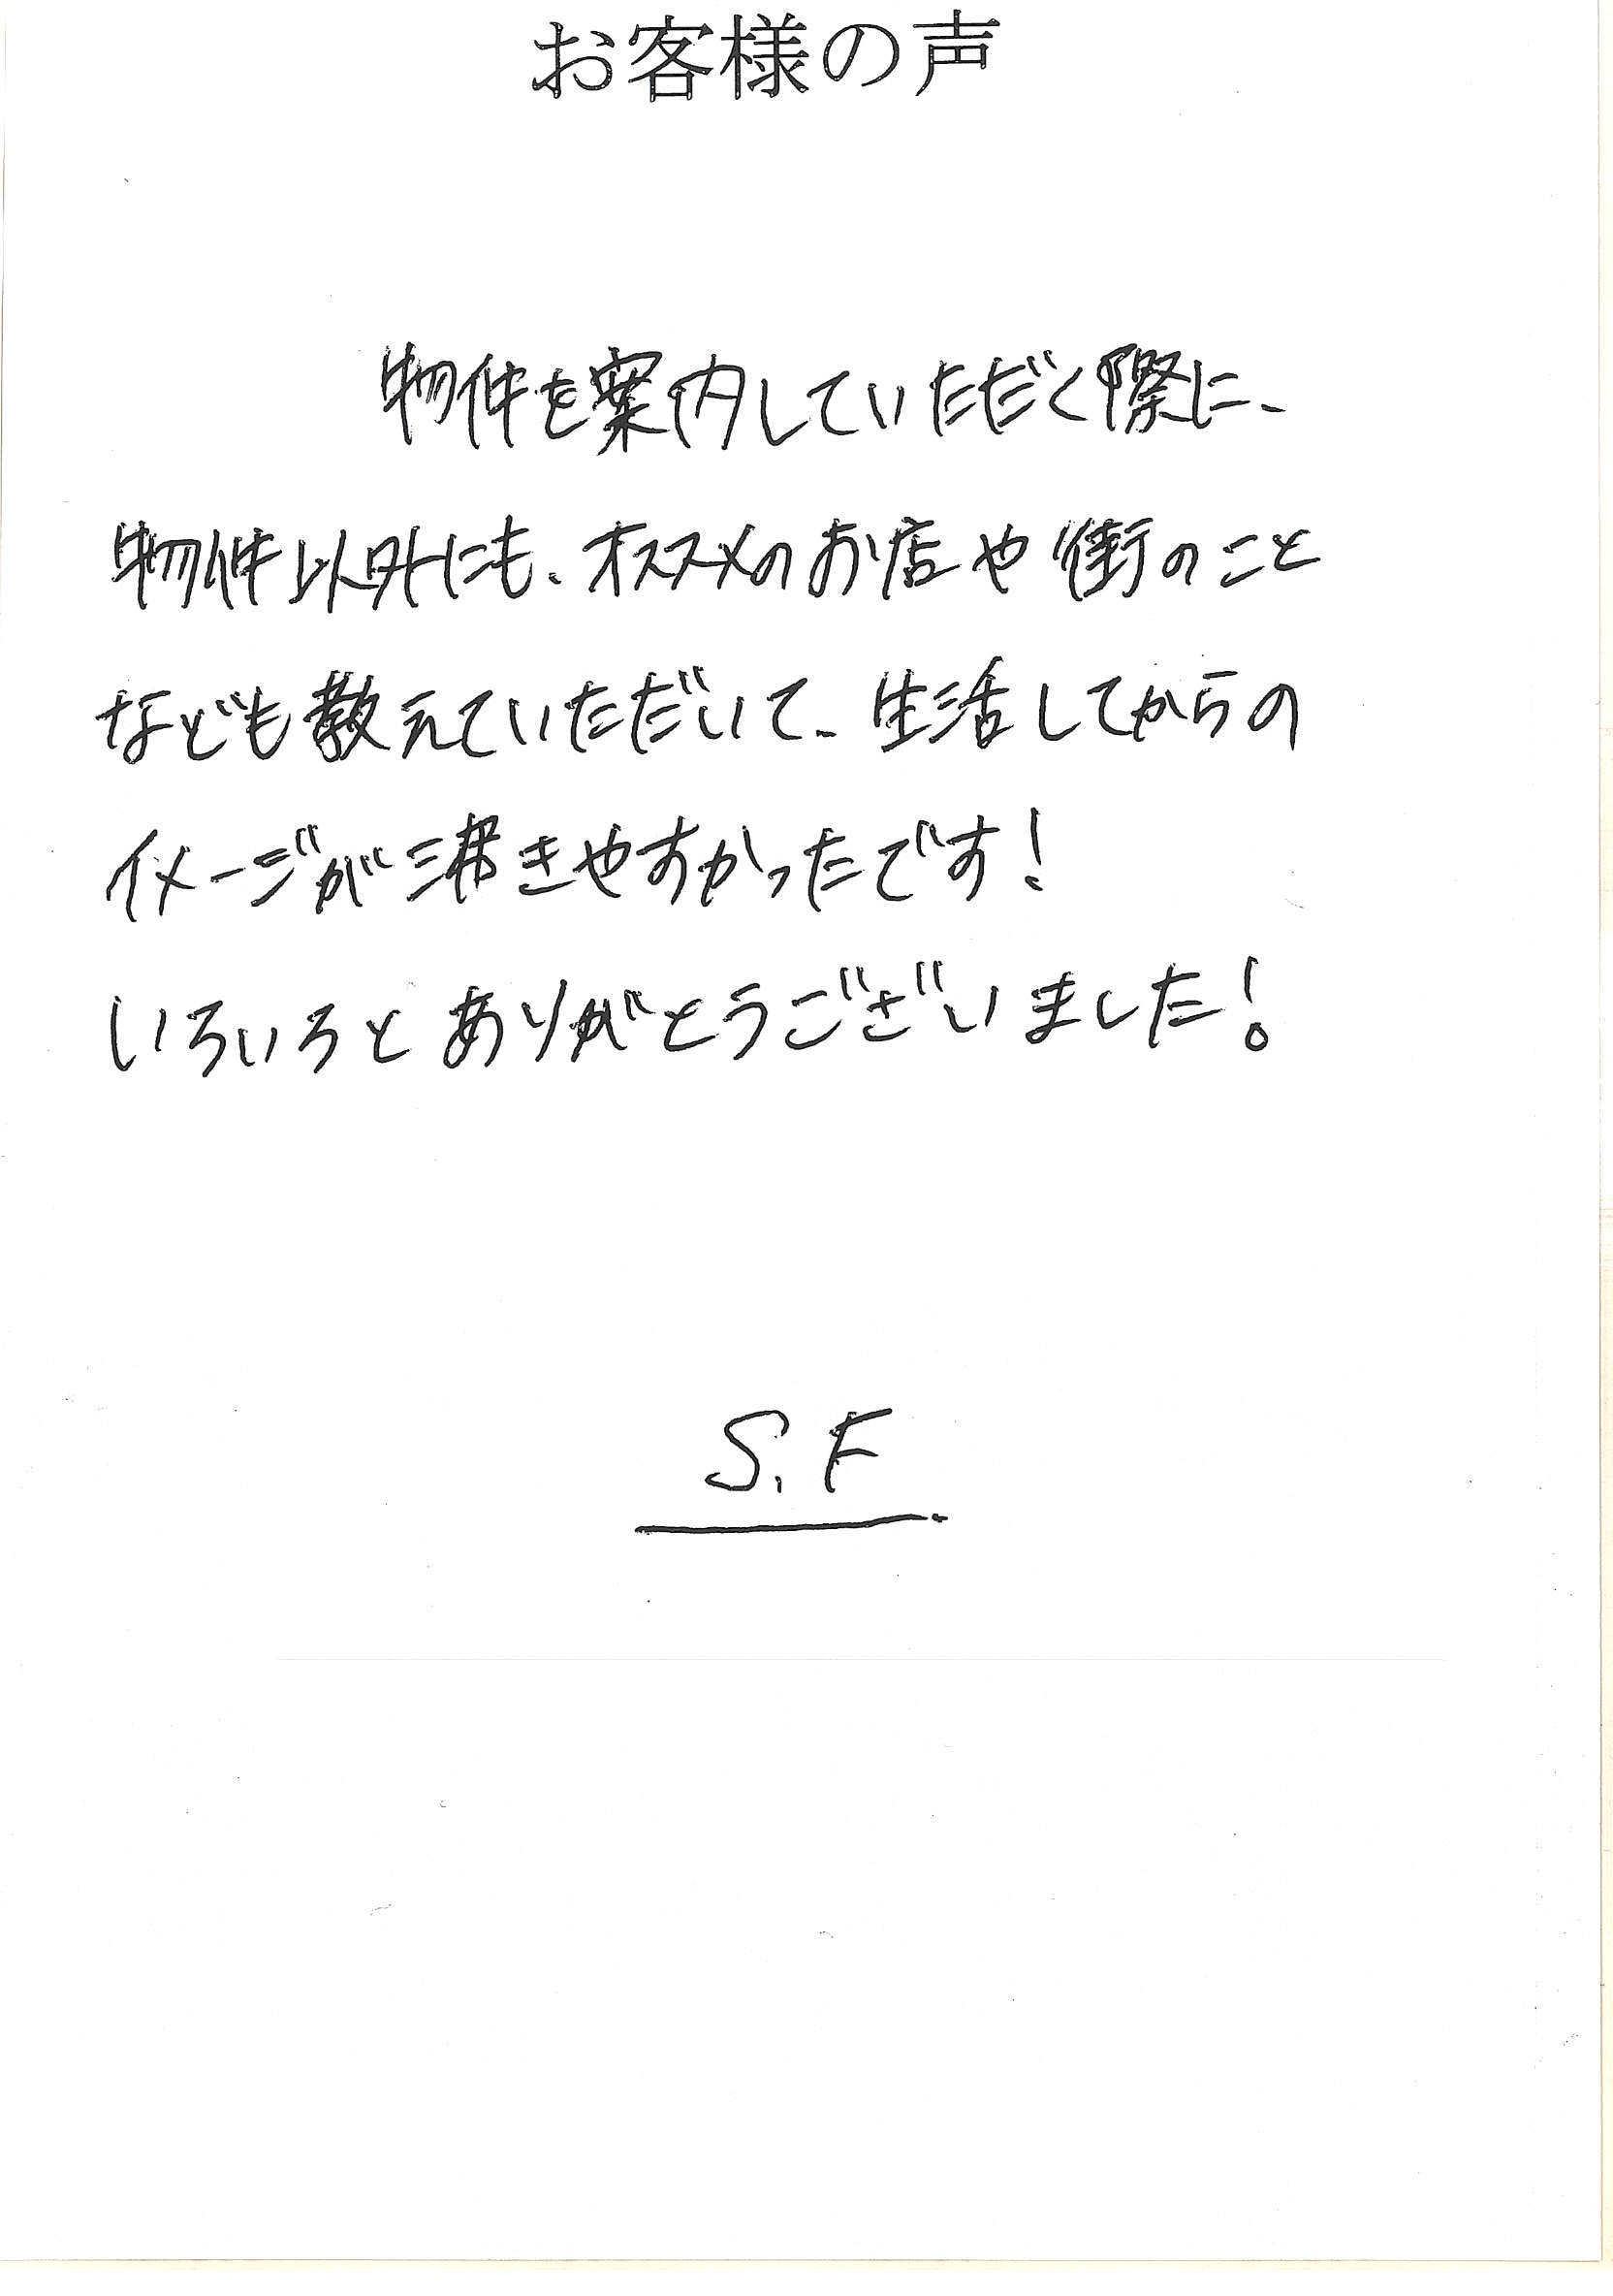 お客様の声
物件を案内していただく際に、
物件以外にも、オススメのお店や街のこと
なども教えていただいて、生活してからの
イメージが沸きやすかったです!
いろいろとありがとうございました!
S.F